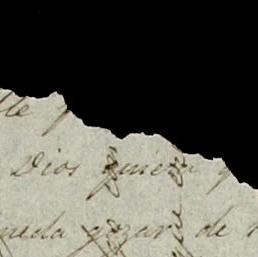 lle
Dios quiera q
pueda gozar de